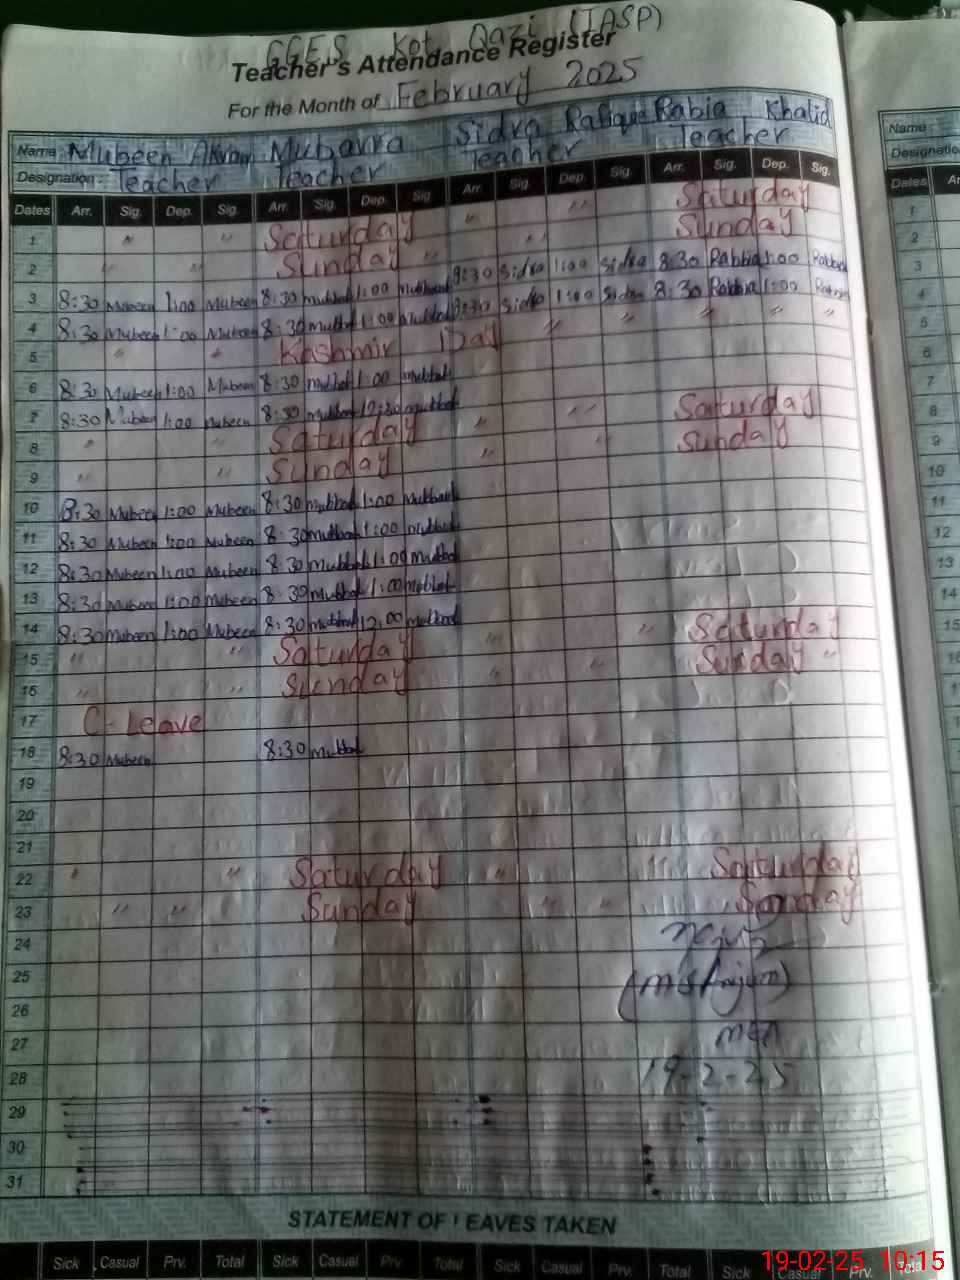 GGES Kot Qazi (IASP)
Teacher's Attendance Register
For the Month of February 2025
Name Mubeen Akram Mubarra Sidra Rafique Rabia Khalid
Designation: Teacher Teacher Teacher Teacher
Dates Arr. Sig. Dep. Sig. Arr. Sig. Dep. Sig. Arr. Sig. Dep. Sig. Arr. Sig. Dep. Sig.
1 " " Saturday " " Saturday
2 " " Sunday " " Sunday
3 8:30 Mubeen 1:00 Mubeen 8:30 1:00 8:30 Sidra 1:00 Sidra 8:30 Rabbia 1:00 Rabbia
4 8:30 Mubeen 1:00 Mubeen 8:30 1:00 8:30 Sidra 1:00 Sidra 8:30 Rabbia 1:00
5 " " Kashmir Day " " " " "
6 8:30 Mubeen 1:00 Mubeen 8:30 1:00
7 8:30 Mubeen 1:00 Mubeen 8:30 12:30
8 " Saturday " " Saturday
9 " " Sunday " " Sunday
10 8:30 Mubeen 1:00 Mubeen 8:30 1:00
11 8:30 Mubeen 1:00 Mubeen 8:30 1:00
12 8:30 Mubeen 1:00 Mubeen 8:30 1:00
13 8:30 Mubeen 1:00 Mubeen 8:30 1:00
14 8:30 Mubeen 1:00 Mubeen 8:30 12:00
15 " " Saturday " " Saturday
16 " " Sunday " " Sunday "
17 C-Leave
18 8:30 Mubeen 8:30
19
20
21
22 " " Saturday " " Saturday
23 " " Sunday " " Sunday
24
25
26
27 MEA
28 19-2-25
29
30
31
STATEMENT OF LEAVES TAKEN
Sick Casual Prv. Total Sick Casual Prv. Total Sick Casual Prv. Total Sick Casual Prv.
Name
Designation
Dates
1
2
3
4
5
6
7
8
9
10
11
12
13
14
15
19-02-25 10:15